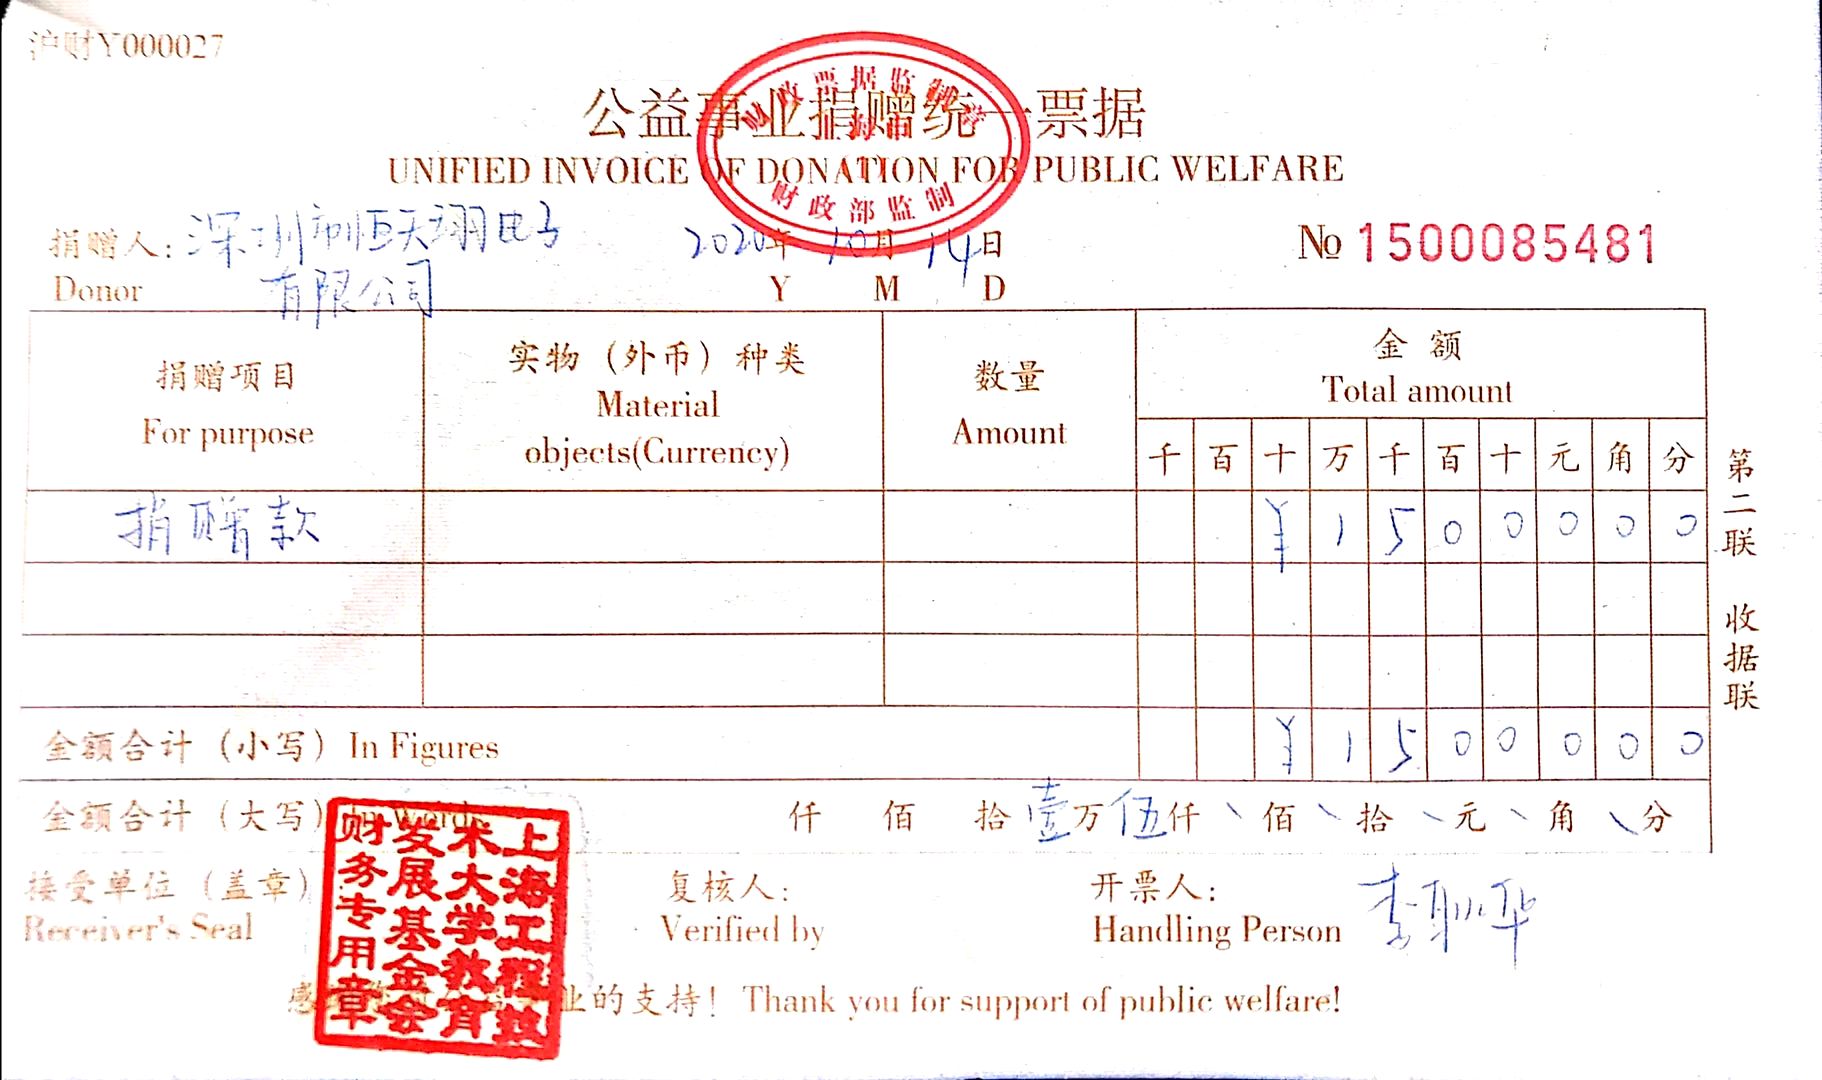 沪财Y000027
公益事业捐赠统一票据
UNIFIED INVOICE OF DONATION FOR PUBLIC WELFARE
财政票据监制章
财政部监制
捐赠人: 深圳市恒天翊电子
有限公司
Donor
2020年 10月 14日
Y M D
№ 1500085481
捐赠项目
For purpose
实物（外币）种类
Material
objects(Currency)
数量
Amount
金 额
Total amount
千 百 十 万 千 百 十 元 角 分
捐赠款
¥ 1 5 0 0 0 0 0
金额合计（小写）In Figures
¥ 1 5 0 0 0 0 0
金额合计（大写）
仟 佰 拾 壹万 伍仟 \ 佰 \ 拾 \ 元 \ 角 \ 分
接受单位（盖章）
Receiver's Seal
上海工程技
术大学教育
发展基金会
财务专用章
复核人:
Verified by
开票人:
Handling Person
业的支持！ Thank you for support of public welfare!
第二联 收据联